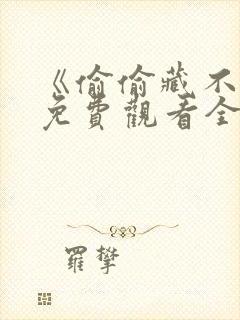 《偷偷藏不
免費觀看全
羅攀